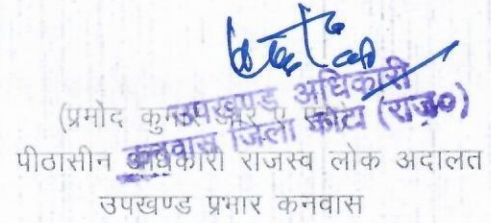 उपखण्ड अधिकारी
कनवास जिला कोटा (राज०)
(प्रमोद कुमार आर ए
पीठासीन अधिकारी राजस्व लोक अदालत
उपखण्ड प्रभार कनवास